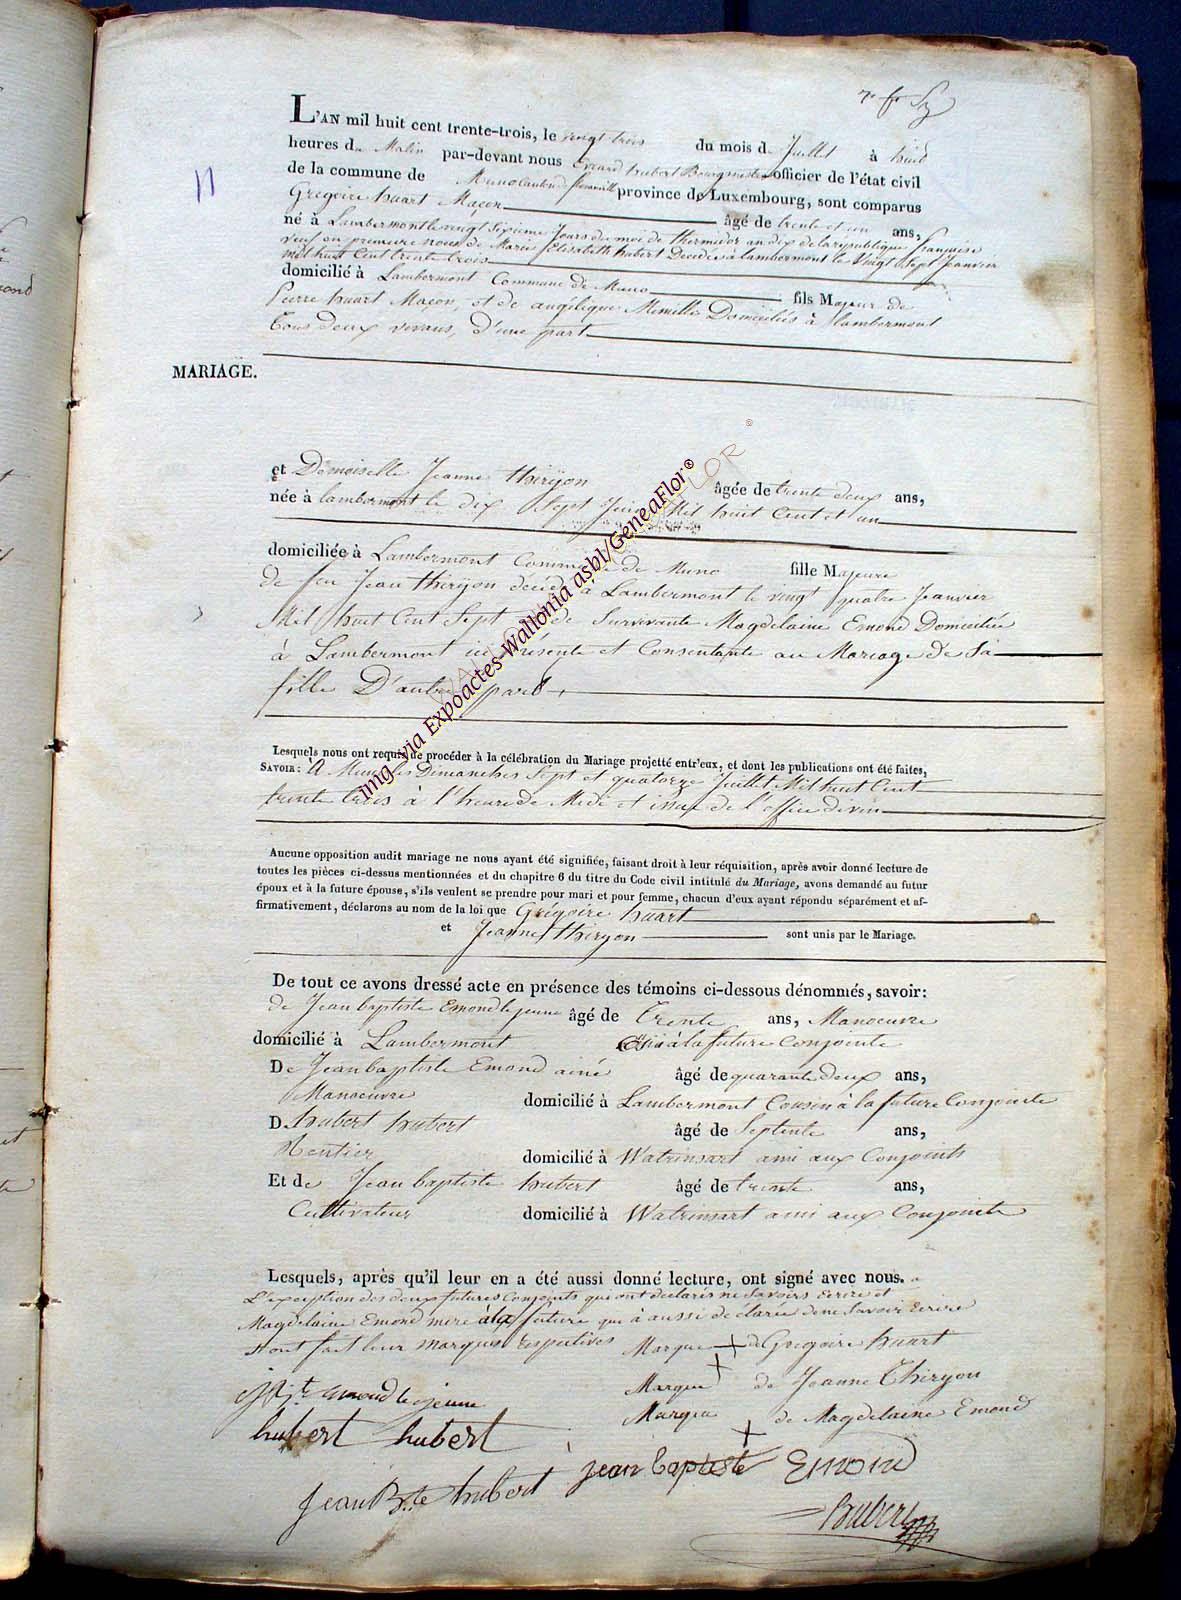 L'AN mil huit cent trente-trois, le vingt trois du mois de Juillet à huit
heures du Matin par-devant nous Evrard hubert Bourgmestre officier de l'état civil
de la commune de Muno Canton de florenville province de Luxembourg, sont comparus
Gregoire huart Maçon âgé de trente et un ans,
né à Lambermont le vingt Sixieme Jours du moi de thermidor an dix de la republique française
veuf en premiere noces de Marie Elisabeth hubert Decedée à lambermont le Vingt Sept Jeanvier
mil huit Cent trente trois
domicilié à Lambermont Commune de Muno fils Majeur de
Pierre huart Maçon, et de angélique Domiciliés à lambermont
tous deux vivans, d'une part
MARIAGE.
11
et Demoiselle Jeanne thiryon âgée de trente deux ans,
née à lambermont le dix Sept Juin Mil huit Cent et un
domiciliée à Lambermont Commune de Muno fille Majeure
de feu Jean thiryon decedé à Lambermont le vingt quatre Jeanvier
Mil huit Cent Sept et de Survivante Magdelaine Emond Domiciliée
à Lambermont ici présente et Consentante au Mariage de Sa
fille D'autre part
Lesquels nous ont requis de procéder à la célébration du Mariage projetté entr'eux, et dont les publications ont été faites,
SAVOIR: A Muno les Dimanches Sept et quatorze Juillet Mil huit Cent
trente trois à l'heure de Midi et issue de l'office divin
Aucune opposition audit mariage ne nous ayant été signifiée, faisant droit à leur réquisition, après avoir donné lecture de
toutes les pièces ci-dessus mentionnées et du chapitre 6 du titre du Code civil intitulé du Mariage, avons demandé au futur
époux et à la future épouse, s'ils veulent se prendre pour mari et pour femme, chacun d'eux ayant répondu séparément et af-
firmativement, déclarons au nom de la loi que Grégoire huart
et Jeanne thiryon sont unis par le Mariage.
De tout ce avons dressé acte en présence des témoins ci-dessous dénommés, savoir:
de Jean baptiste Emond le jeune âgé de trente ans, Manoeuvre
domicilié à Lambermont à la future Conjointe
De Jean baptiste Emond ainé âgé de quarante deux ans,
Manoeuvre domicilié à Lambermont Cousin à la future Conjointe
D. hubert hubert âgé de Septente ans,
Rentier domicilié à Watrinsart ami aux Conjoints
Et de Jean baptiste hubert âgé de trente ans,
Cultivateur domicilié à Watrinsart ami aux Conjoints
Lesquels, après qu'il leur en a été aussi donné lecture, ont signé avec nous. a
L'exception des deux futures Conjoints qui ont declarés ne Savoirs Ecrire et
Magdelaine Emond mere à la future qui à aussi déclarée de ne Savoir Ecrire
et ont fait leur marques respectives Marque de Gregoire huart
Marque de Jeanne Thiryon
Marque de Magdelaine Emond
JBte emond le jeune
hubert hubert
jean baptiste Emond
Jean Bte hubert
hubert
Img via Expoactes-Wallonia asbl/GeneaFlor®